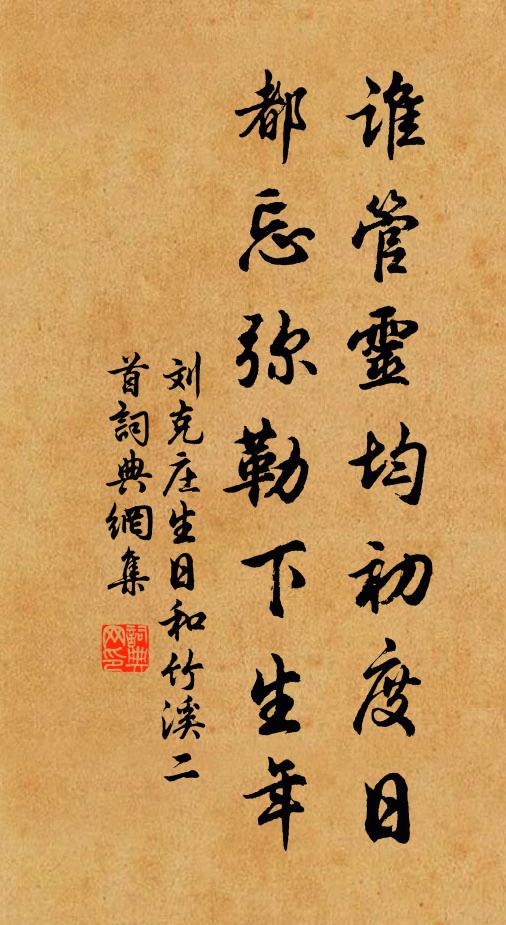 谁管靈均初度日
都忘弥勒下生年
刘克庄生日和竹溪二
首詞典網集
詞典網印